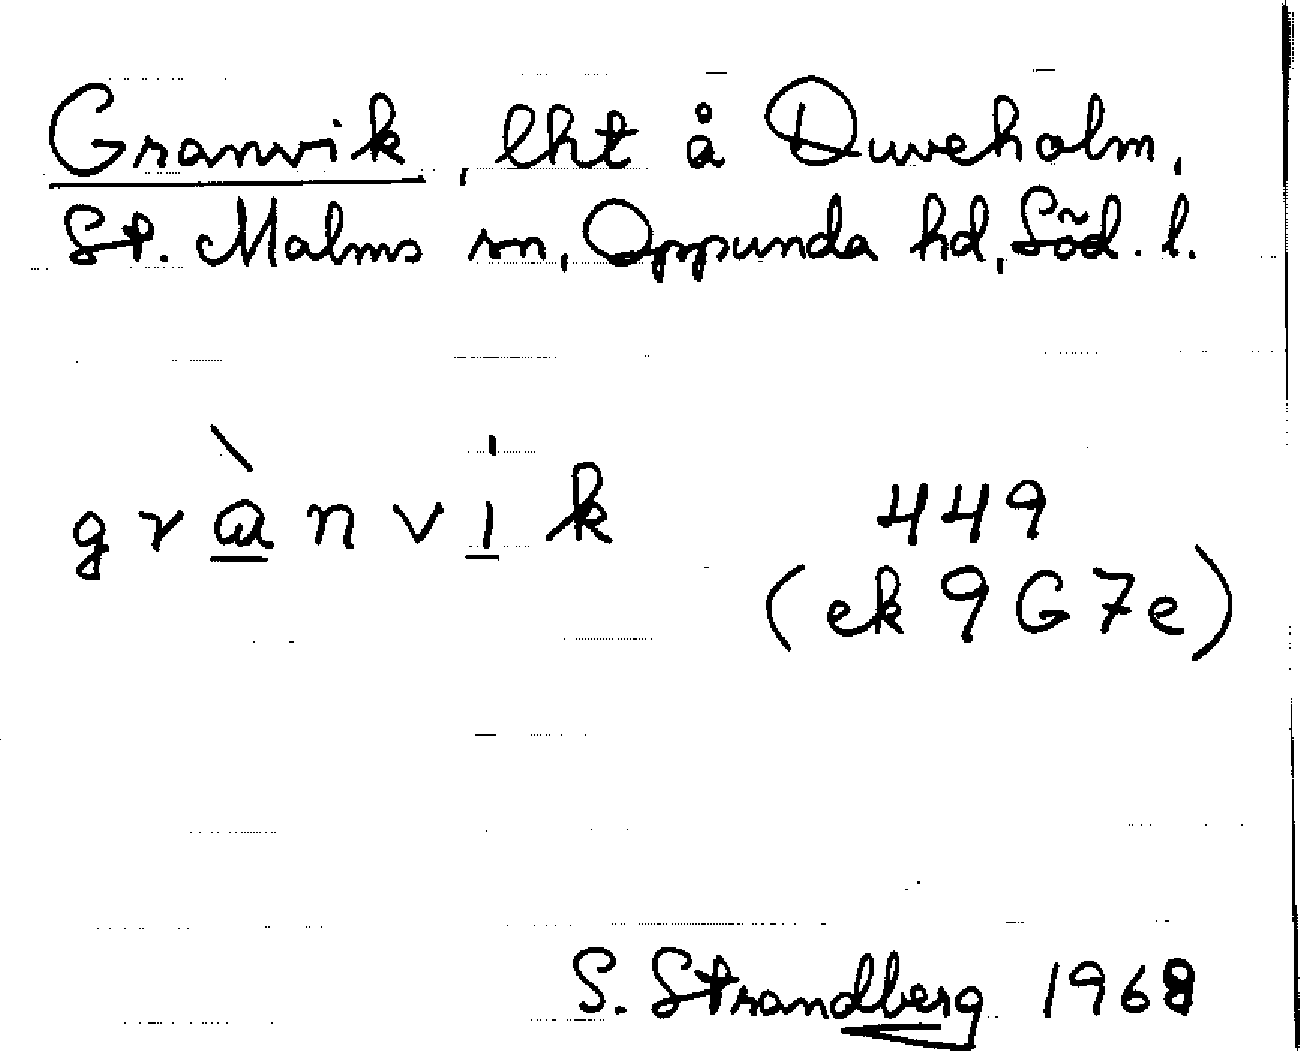 Granvik, lht å Duveholm,
St. Malms sn, Oppunda hd, Söd. l.
grànvik 449
(ek 9G7e)
S. Strandberg 1968